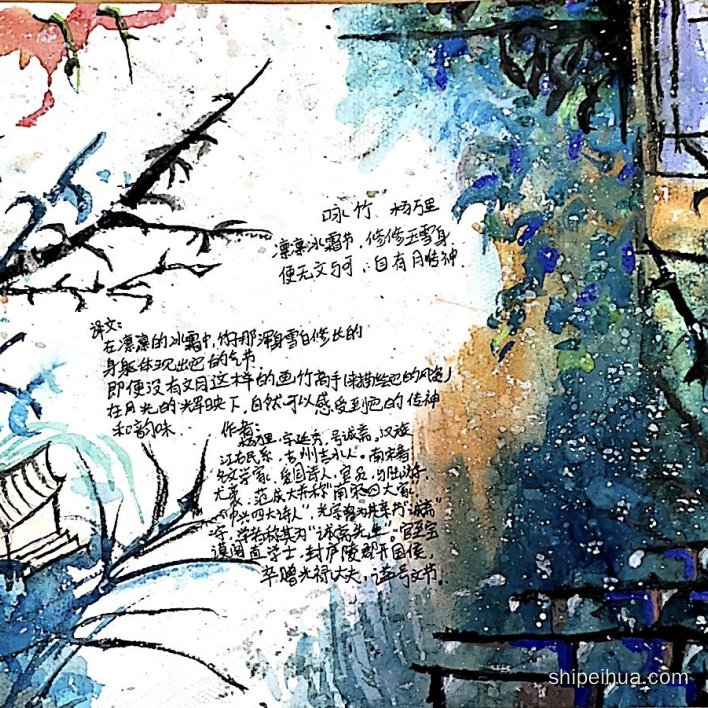 咏竹 杨万里
凛凛冰霜节，修修玉雪身
便无文与可，自有月传神.
译文：
在凛凛的冰霜中，竹那浑身雪白修长的
身躯体现出它的气节.
即便没有文同这样的画竹高手(来描绘它的风姿)
在月光的照映下，自然可以感受到它的传神
和韵味.
作者：
杨万里，字廷秀，号诚斋。汉族
江右民系，吉州吉水人。南宋著
名文学家，爱国诗人，官员，与陆游，
尤袤，范成大并称"南宋四大家，
"中兴四大诗人"，光宗曾为其亲书"诚斋"
学者称其为"诚斋先生"。官至宝
谟阁直学士，封庐陵郡开国侯，
卒赠光禄大夫，谥号文节.
shipeihua.com